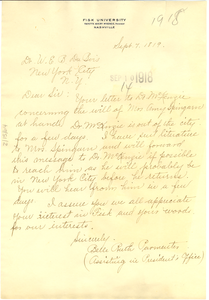 FISK UNIVERSITY
NASHVILLE
1918
Sept. 7, 1918.
Dr. W. E. B. Du Bois
New York City
N. Y.
SEP 14 1918
Dear Sir: Your letter to Dr. McKenzie
concerning the will of Mrs. Amy Spingarn
at hand. Dr. McKenzie is out of the city
for a few days. I have sent literature
to Mrs. Spingarn and will forward
this message to Dr. McKenzie if possible
to reach him as he will probably be
in New York City before he returns.
You will hear from him in a few
days. I assure you we all appreciate
your interest in Fisk and your words
for our interests.
Sincerely,
Belle Ruth Parmenter
(Assisting in President's Office)